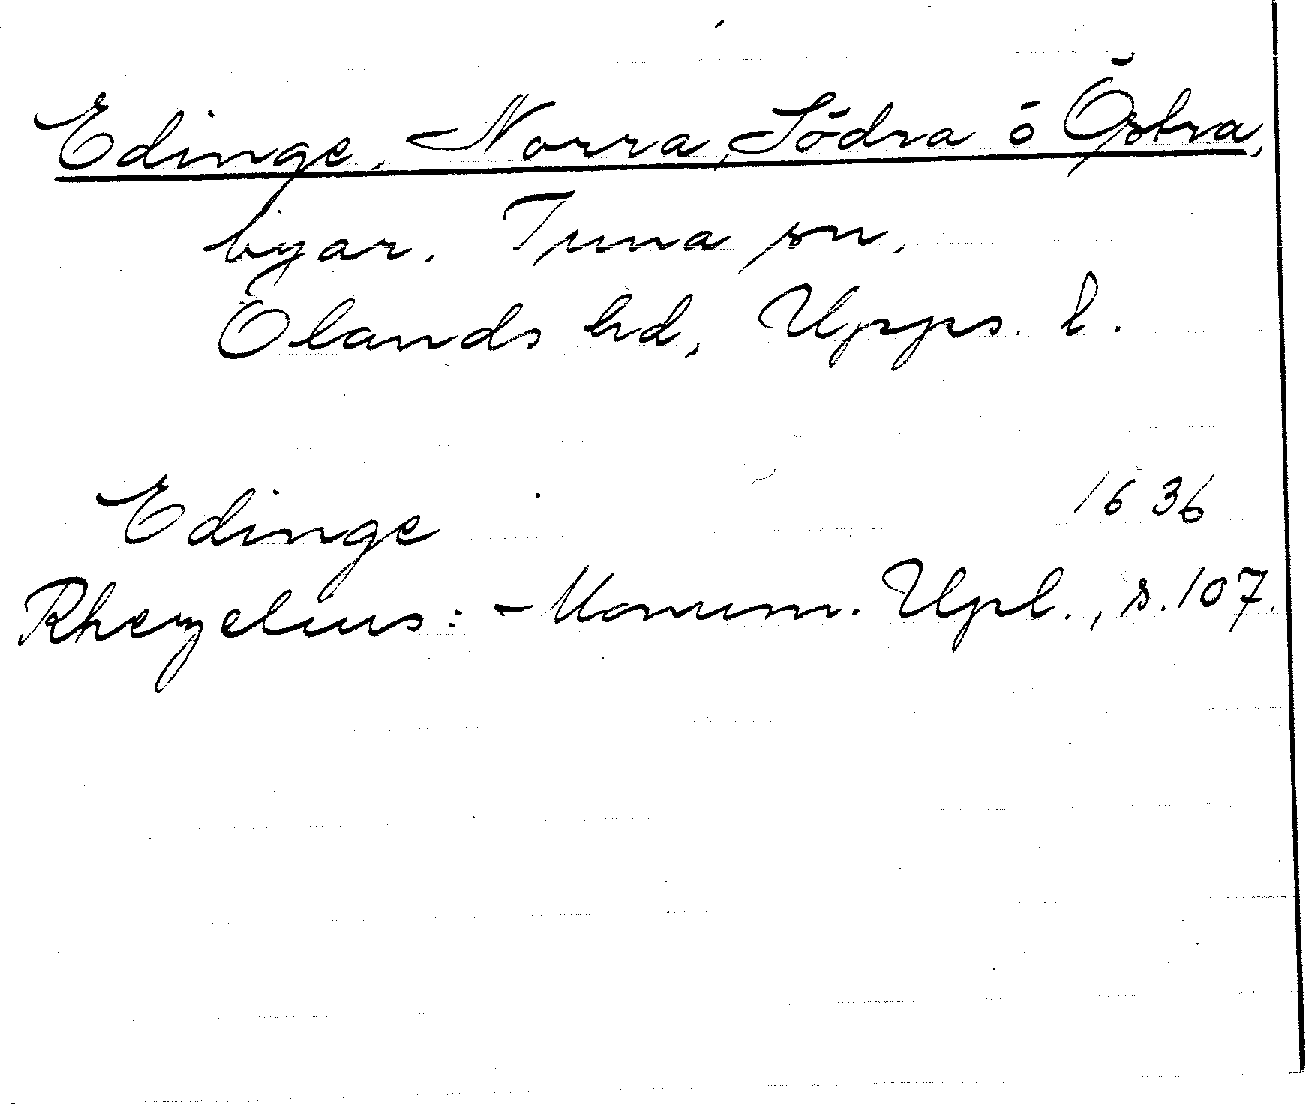 Edinge, Norra, Södra o Östra,
byar. Tuna sn,
Olands hd, Upps. l.
Edinge 1636
Rhezelius: Monum. Upl., s. 107.